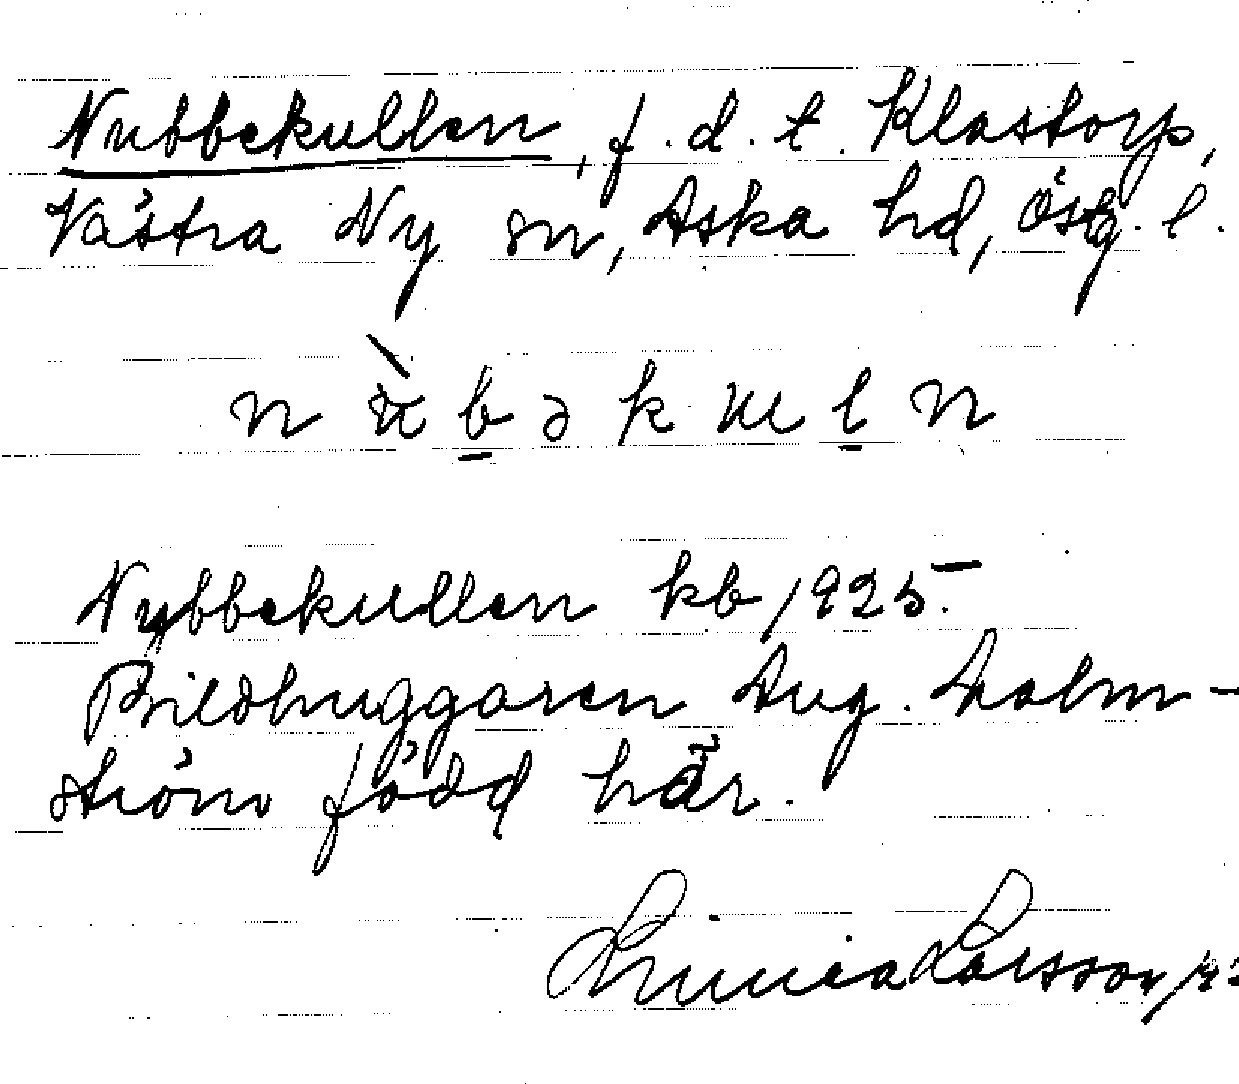 Nubbekullen, f.d.t. Klastorp,
Västra Ny sn, Aska hd, Östg. l.
n ù b ə k u l n
Nybbekullen kb 1925.
Bildhuggaren Aug. Malm-
ström född här.
Linnea Larsson